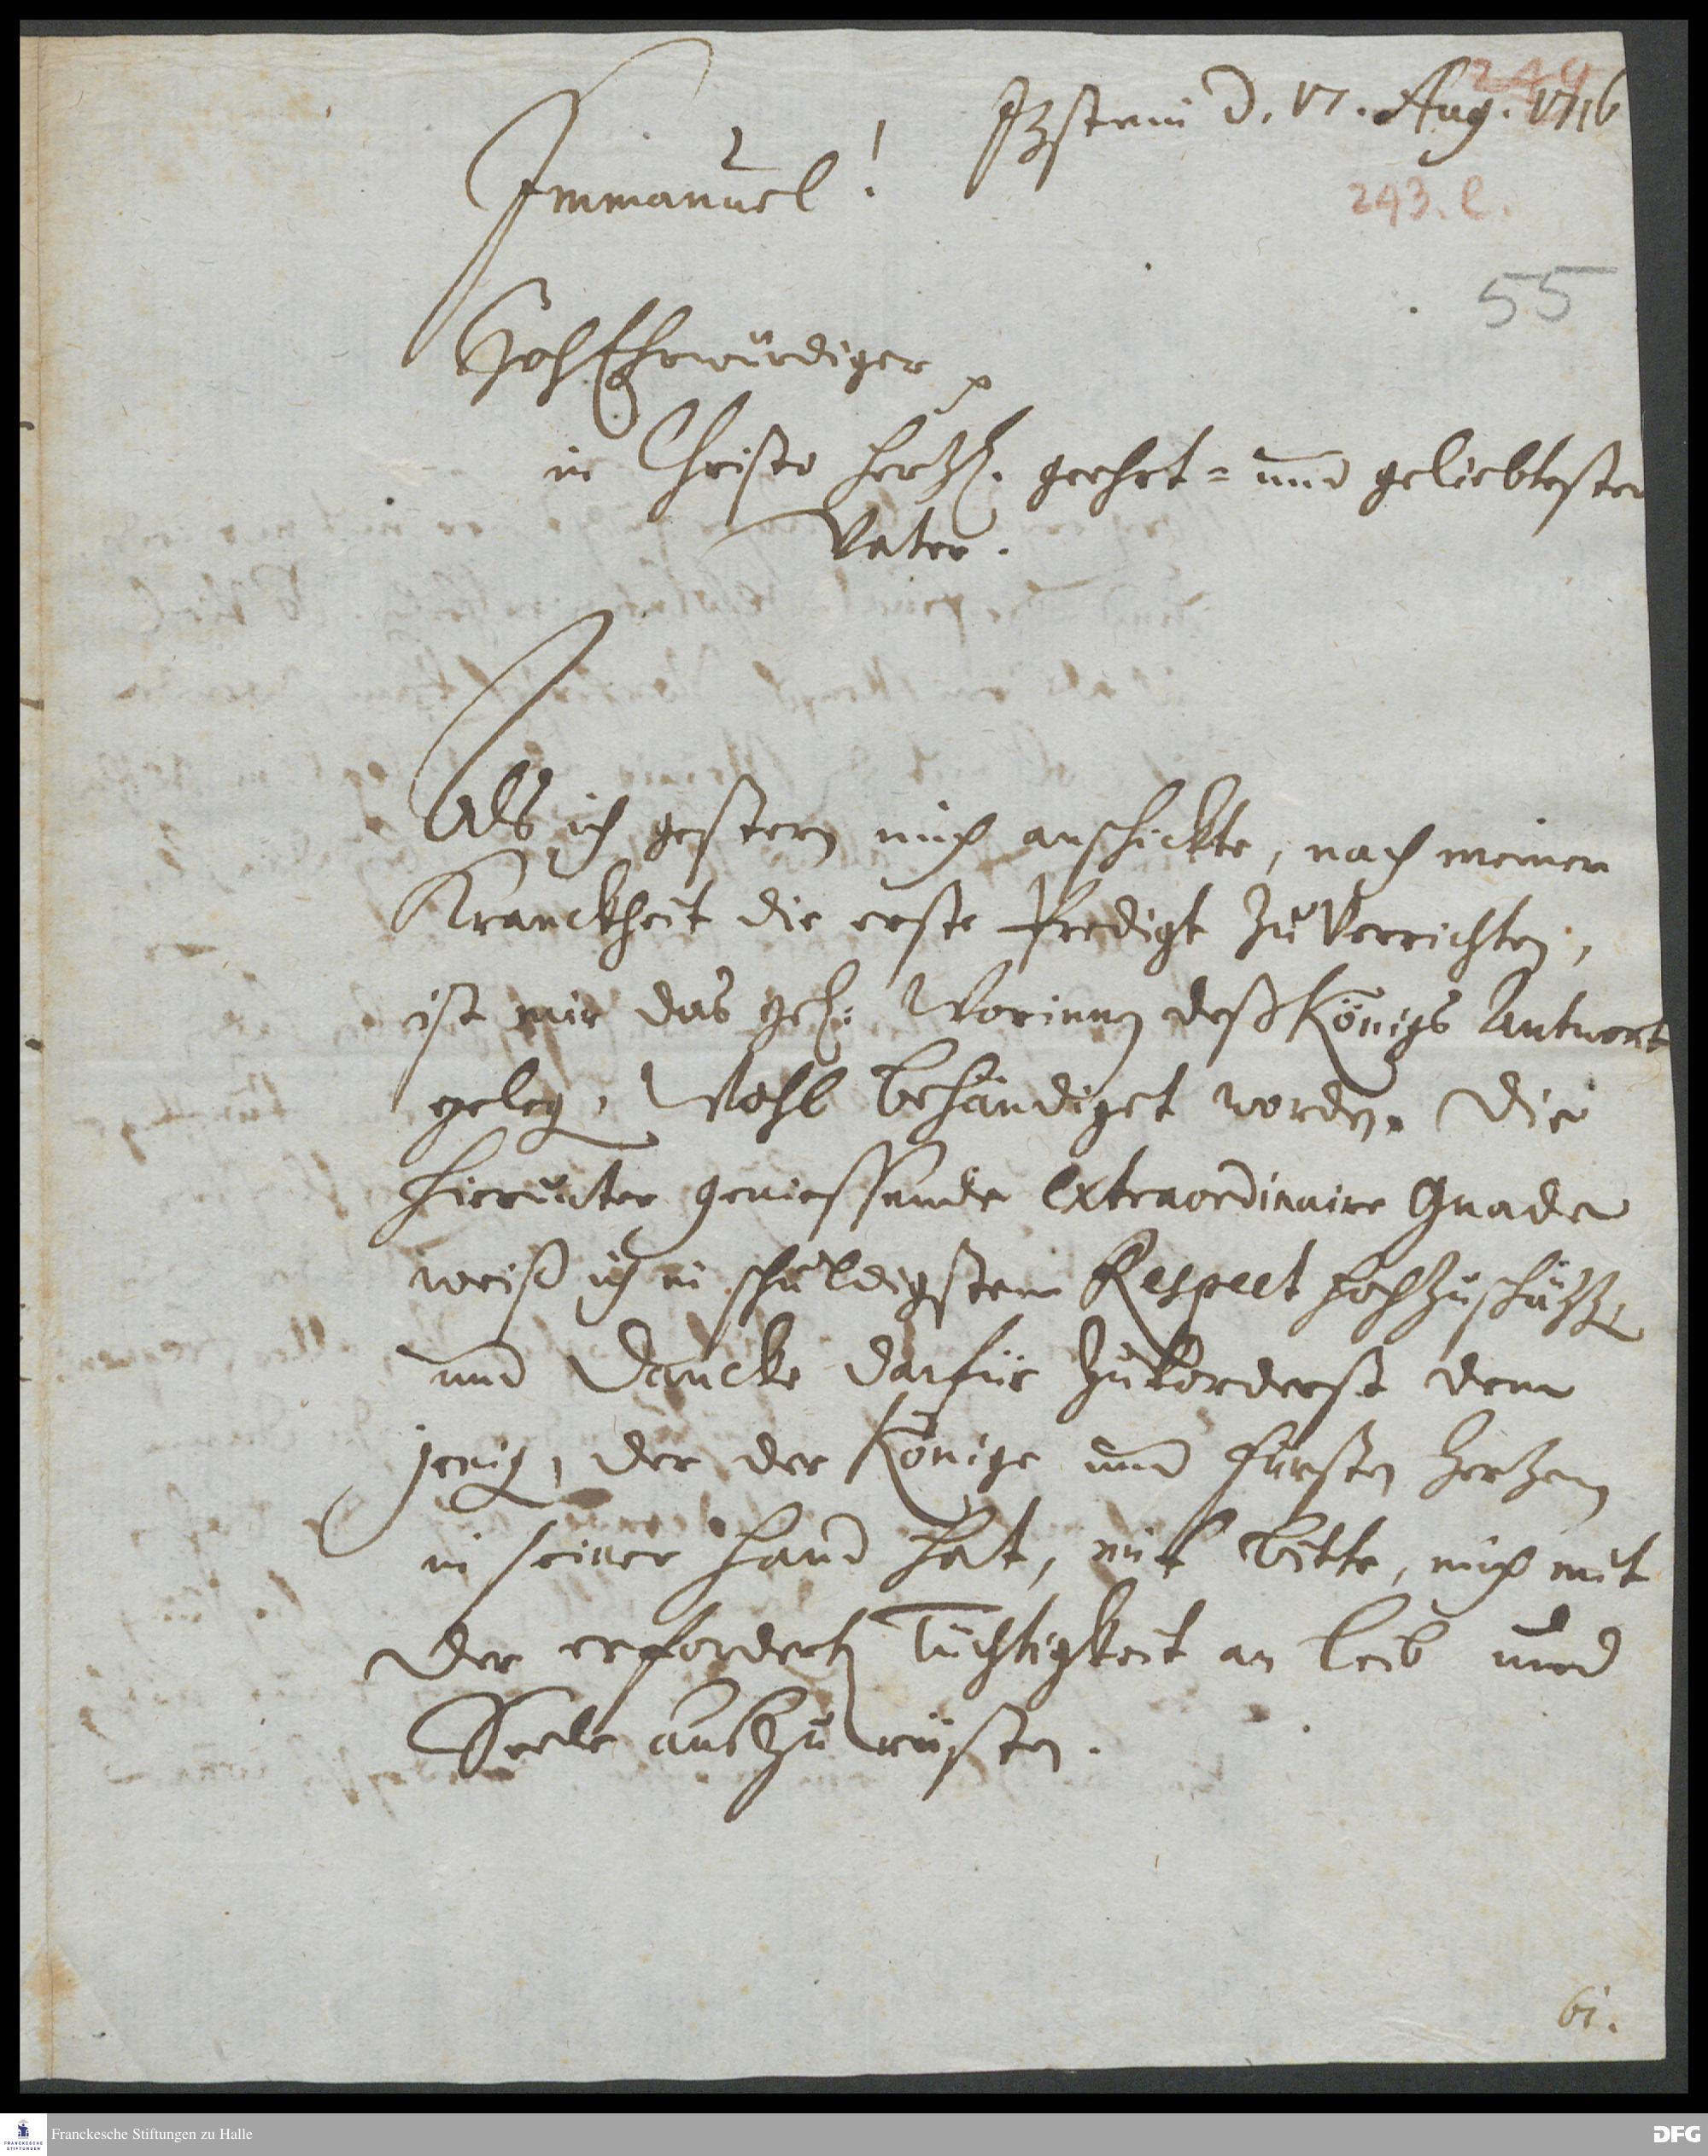 249
Itzstein d. 17. Aug. 1716
Immanuel!
243. l.
55
HochEhrwürdiger
in Christo hertzl. geehrt- und geliebtester
Vater.
Als ich gestern mich anschickte, nach meiner
Kranckheit die erste Predigt zu verrichten,
ist mir das Worinnen deß Königs Antwort
geleg. Wohl behändiget worden. Die
hierunter geniessende extraordinaire Gnade
weiß ich in schuldigstem Respect hochzuschätzen
und Dancke darfür zuvorderst dem
jenigen, der der Könige und Fürsten Hertzen
in seiner Hand hat, mit Bitte, mich mit
der erforderten Tüchtigkeit an Leib und
Seele auszurüsten.
61.
Franckesche Stiftungen zu Halle
FRANCKESCHE
STIFTUNGEN
DFG